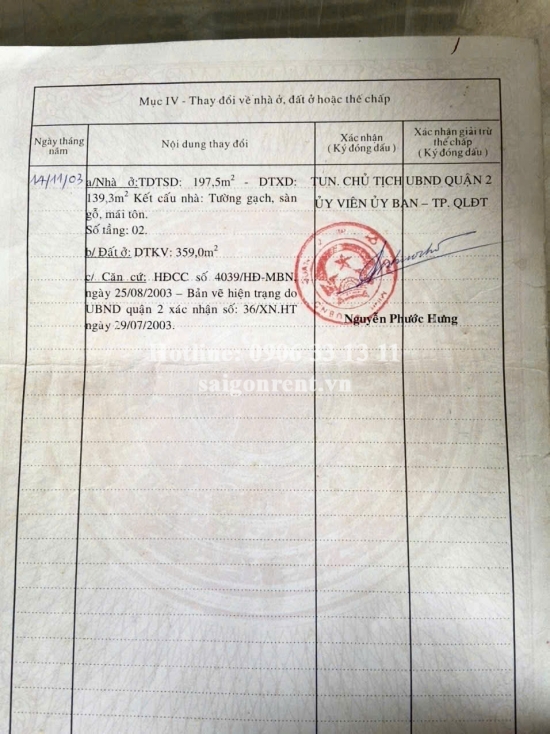 Mục IV - Thay đổi về nhà ở, đất ở hoặc thế chấp
Ngày tháng năm
Nội dung thay đổi
Xác nhận
( Ký đóng dấu )
Xác nhận giải trừ
thế chấp
( Ký đóng dấu )
14/11/03
a/Nhà ở:TDTSD: 197,5m² - DTXD:
139,3m² Kết cấu nhà: Tường gạch, sàn
gỗ, mái tôn.
Số tầng: 02.
b/ Đất ở: DTKV: 359,0m²
c/ Căn cứ: HĐCC số 4039/HĐ-MBN
ngày 25/08/2003 – Bản vẽ hiện trạng do
UBND quận 2 xác nhận số: 36/XN.HT
ngày 29/07/2003.
TUN. CHỦ TỊCH UBND QUẬN 2
ỦY VIÊN ỦY BAN – TP. QLĐT
Nguyễn Phước Hưng
Hotline: 0906 33 13 11
saigonrent.vn